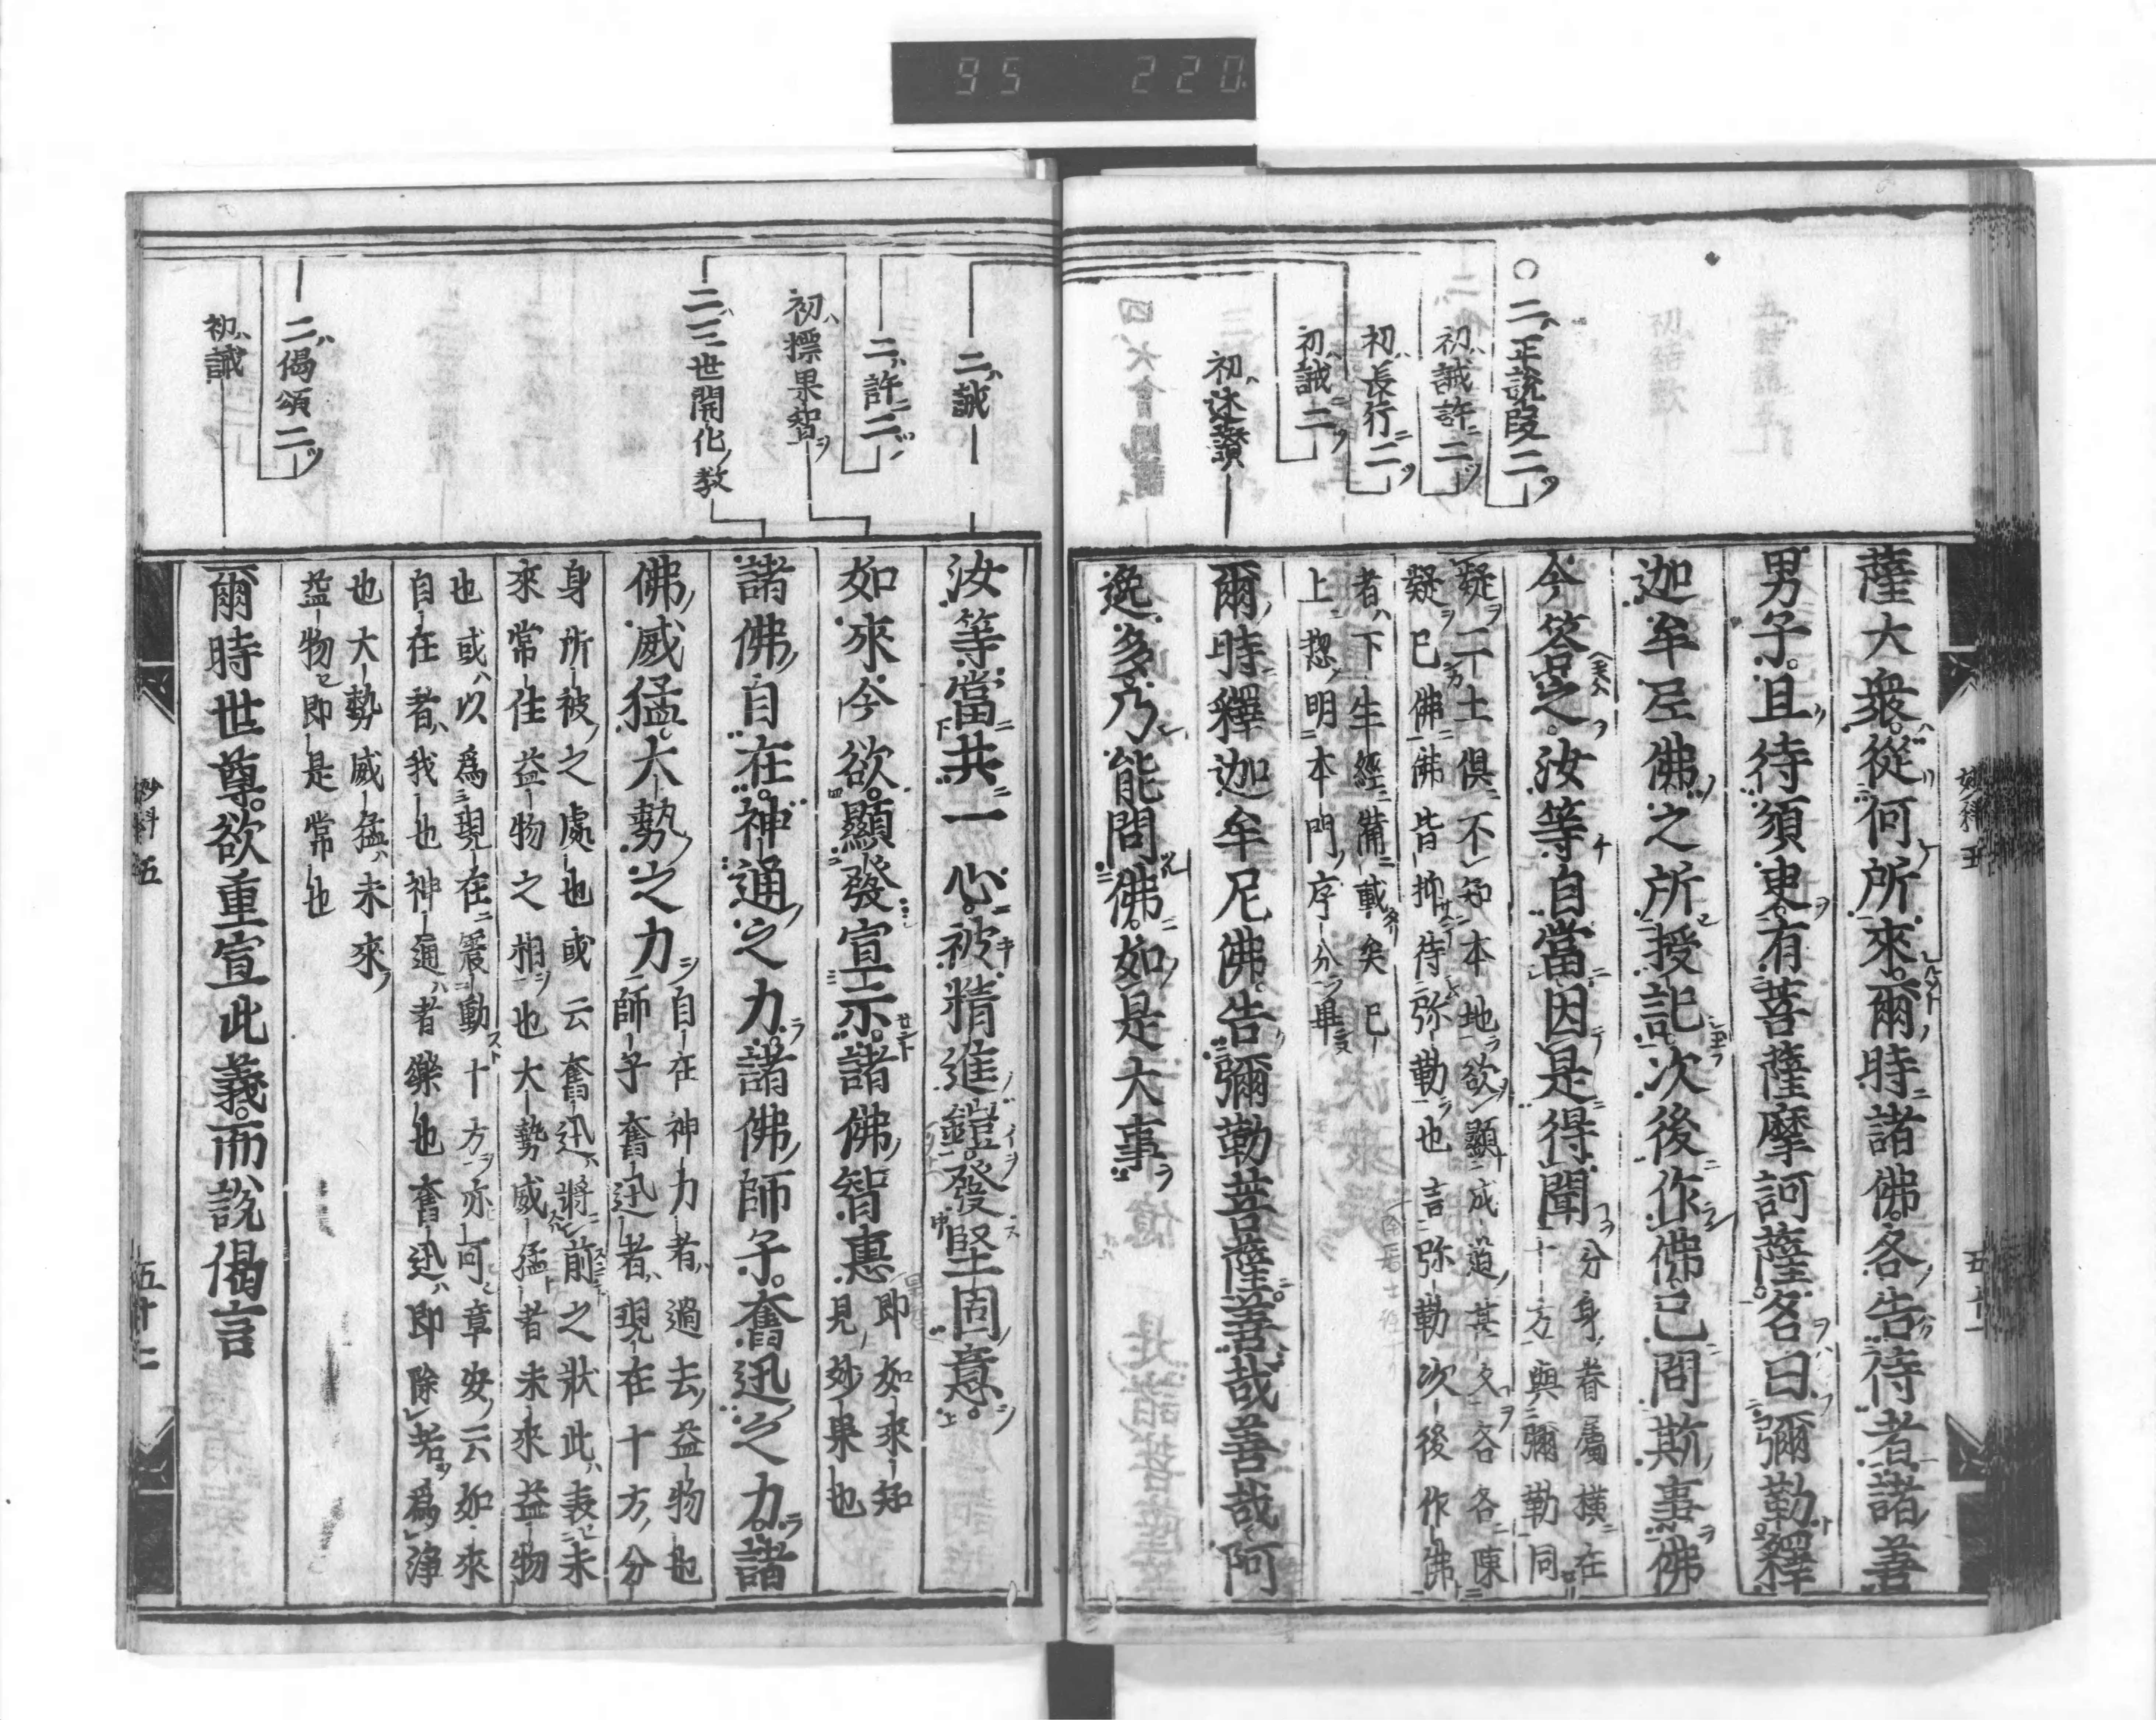 95 220
○二正說段二
初誡許二
初長行二
初誡二
初述讚
薩大衆從何所來爾時諸佛各告侍者諸善
男子且待須臾有菩薩摩訶薩名曰彌勒釋
迦牟尼佛之所授記次後作佛已問斯事佛
今答之汝等自當因是得聞
分身眷屬橫在
十方與彌勒同
疑二土俱不知本地欲顯成迹其文各各陳
疑已佛佛皆抑待弥勒也言弥勒次後作佛
者下生經備載矣已
上惣明本門序分畢
爾時釋迦牟尼佛告彌勒菩薩善哉善哉阿
逸多乃能問佛如是大事
妙科五
五十一
二誡
二許二
初標果智
二三世開化教
二偈頌二
初誡
汝等當共一心被精進鎧發堅固意
如來今欲顯發宣示諸佛智惠
即如來知
見妙果也
諸佛自在神通之力諸佛師子奮迅之力諸
佛威猛大勢之力
自在神力者過去益物也
師子奮迅者現在十方分
身所被之處也或云奮迅將前之狀此表未
來常住益物之相也大勢威猛者未來益物
也或以爲現在震動十方亦可章安云如來
自在者我也神通者樂也奮迅即除若爲淨
也大勢威猛未來
益物即是常也
爾時世尊欲重宣此義而說偈言
妙科五
五十二